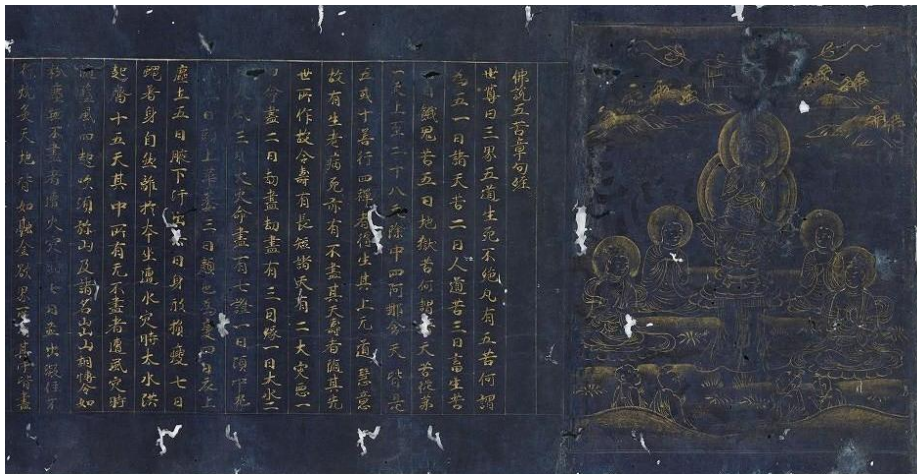 佛說五苦章句經
世尊曰三界五道生死不絶凡有五苦何謂
為五一曰諸天苦二曰人道苦三曰畜生苦
曰餓鬼苦五曰地獄苦何謂天苦從第
一天上至二十八天除中四阿那含天皆是
五戒十善行四禪者得生其上无道慧意
故有生老病死亦有不盡其天壽者緣其先
世所作故令壽有長短諸天有二大灾患一
曰命盡二曰劫盡劫盡有三一曰大水二
三曰大命盡有七證一曰項中光
曰頭上華萎三曰顏色為變四曰衣上
塵土五曰腋下汗出六曰身形損瘦七曰
蠅著身自然離於本坐遭水灾時大水洪
起齊十五天其中所有无不盡者遭風灾時
藍風四起吹須弥山及諸名山山相搏令如
粉塵無不盡者遭火灾時七日並出
天地皆如融金欲界皆盡